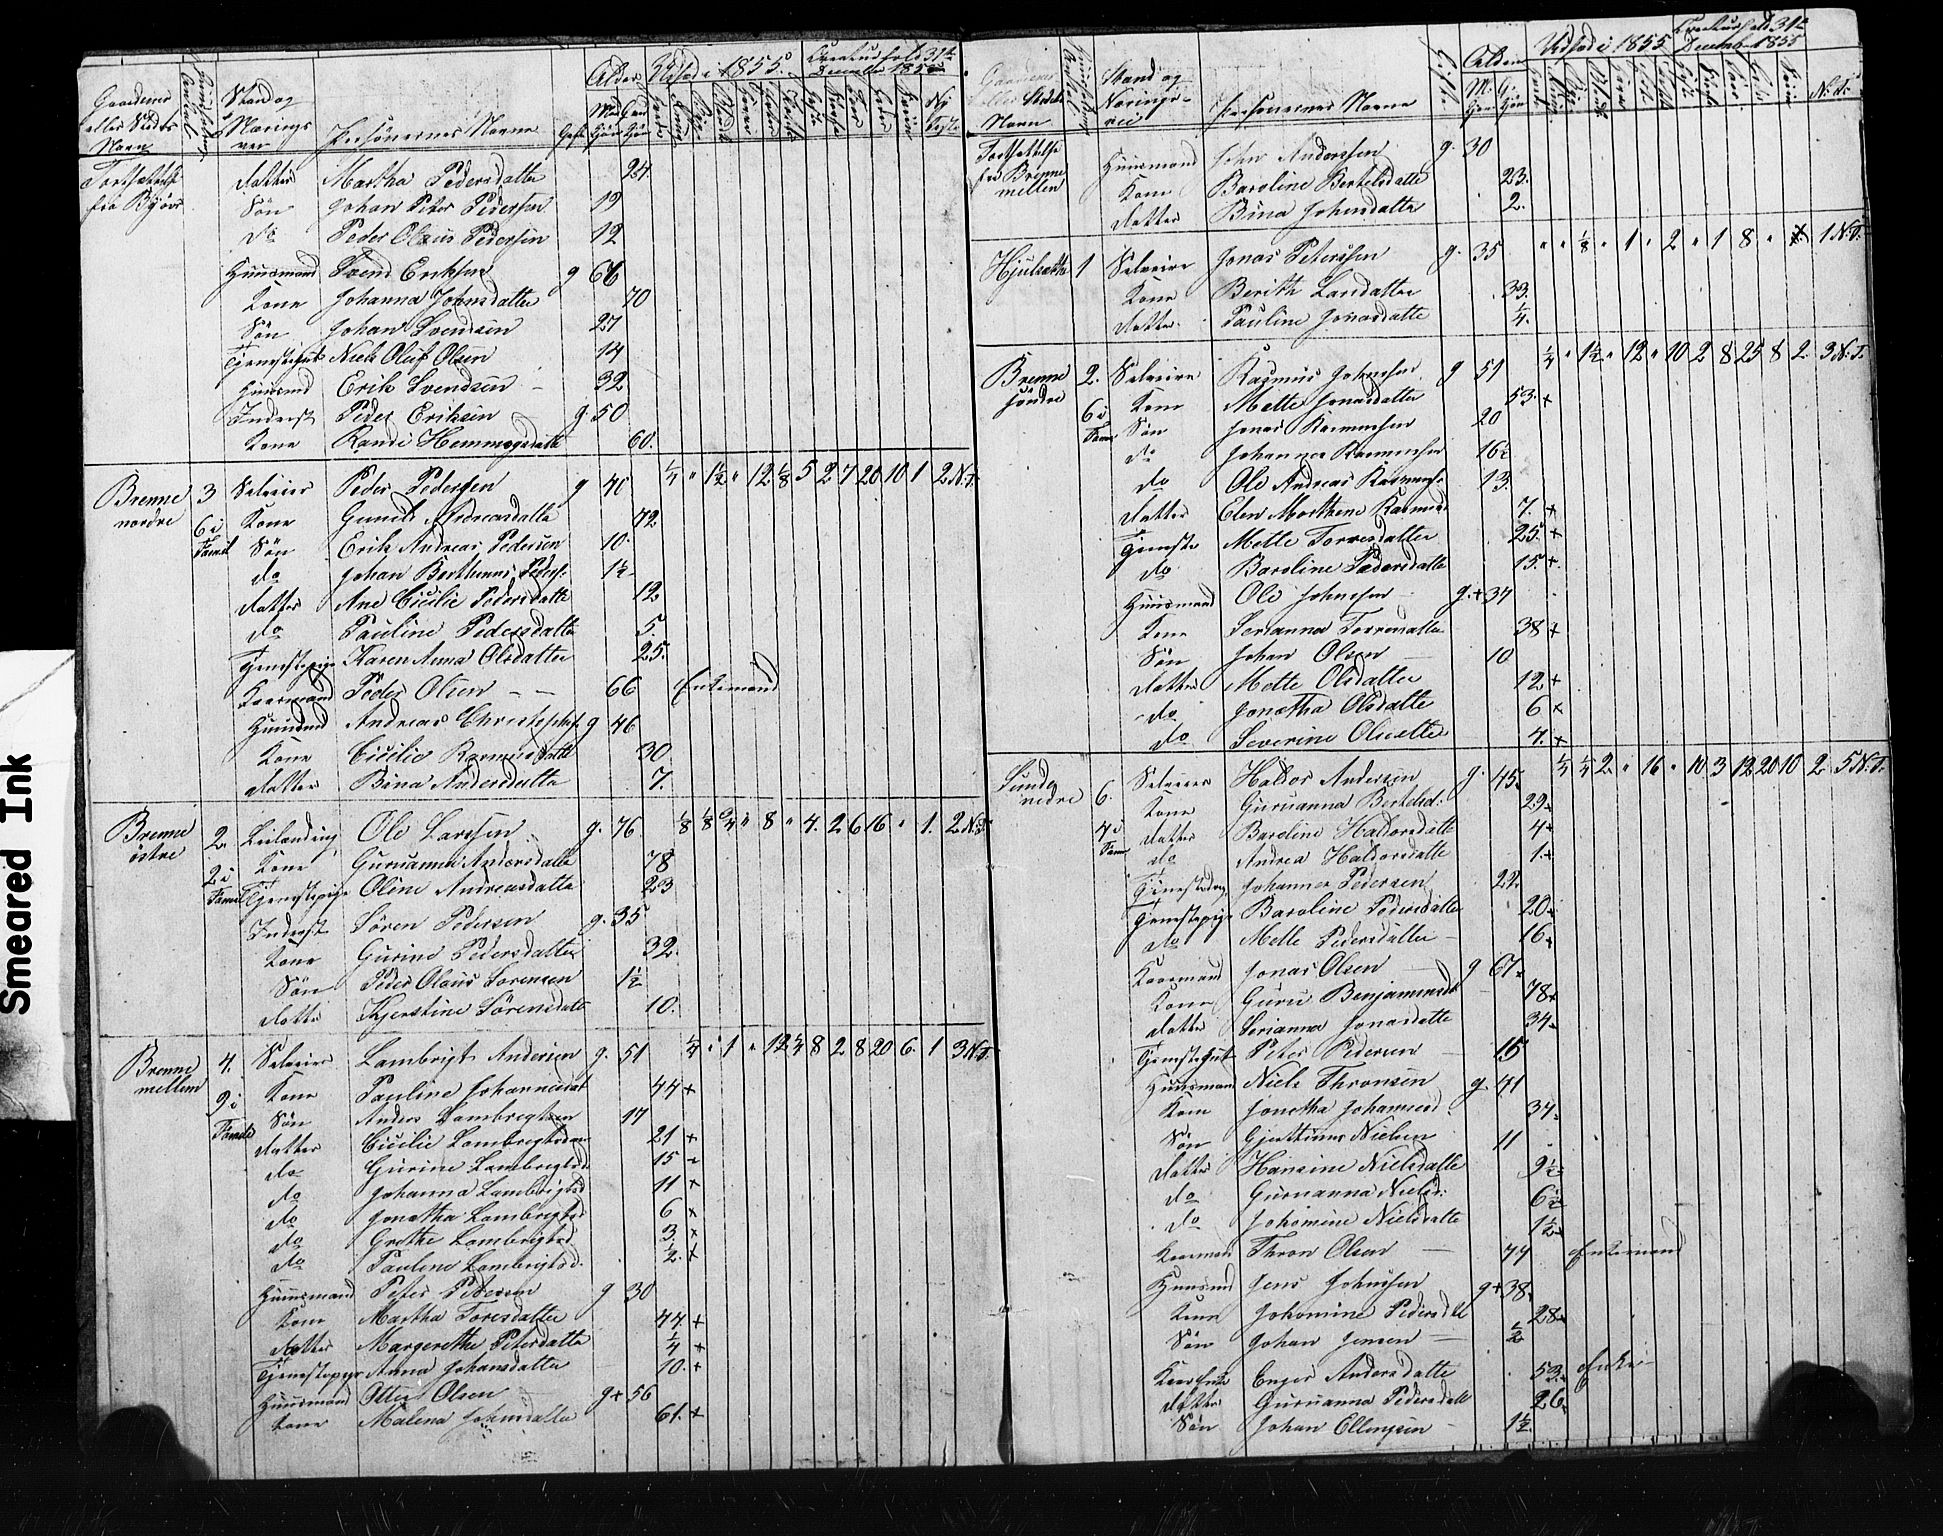 Smeared Ink
Gaardenes eller Stedets Navn
Stand og Nærings vei
Personernes Navne
Gift
Alder
Udsæd i 1855
Creaturhold 31te December 1855
Fortsættelse fra Byöre
datter Martha Pedersdatter 24
Søn Johan Peter Pedersen 19
do Peder Olaus Pedersen 12
Huusmand Svend Eriksen g 66
Kone Johanna Johnsdatter 70
Søn Johan Svendsen 27
Tjenestegut Niels Oluf Olsen 14
Huusmd Erik Svendsen 32
Inderst Peder Eriksen g. 50
Kone Randi Hemmingsdatt 60.
Brenne nordre 3 Selveier Peder Pedersen g 41 1/4 " 1 1/2 " 12 1/8 5 2 7 20 10 1 2 N.T.
6 i Famil Kone Gunild Andreasdatte 42
Søn Erik Andreas Pedersen 10.
do Johan Berthinus Peders. 1 1/2
datter Ane Cicilie Pedersdatte 12
do Pauline Pedersdatter 5.
Tjenestepige Karen Anna Olsdatter 25.
Kaarmand Peder Olsen 66 Enkemand
Huusmd Andreas Christophs. g. 46
Kone Cicilie Rasmusdatte 30
datter Bina Andersdatte 7.
Brenne östre 2. Leilænding Ole Larssen g. 76 1/8 1/8 3/4 " 8 " 4. 2 6 16 " 1. 2 N.T.
2 i Famil Kone Guruanna Andersdatte 78
Tjenestepige Oline Andreasdatte 23
Inderst Sören Pedersen g. 35
Kone Gurine Pedersdatter 32.
Søn Peder Olaus Sorensen 1 1/2
datter Kjerstine Sörensdatt 10.
Brenne mellem 4. Selveier Lambrigt Andersen g. 51 1/4 " 1 " 12 1/4 8 2 8 20 6. 1 3 N.T.
9 i Famile Kone Pauline Johannesdat 44 +
Søn Anders Lambregtsen 17
datter Cicilie Lambregtsda 21 +
do Gurine Lambregtsd 15 -
do Johanna Lambrigtsd 11 +
do Jonetha Lambrigtsd 6 +
do Grethe Lambrigtsd. 3 +
do Pauline Lambrigtsd. 1/2 +
Huusmand Peter Petersen g 30
Kone Martha Toresdatter 44 +
datter Margerethe Petersdatte 1/4 +
Tjenestepige Anna Johansdatter 10. +
Huusmand Otter Olsen g + 56
Kone Malena Johnsdatter 61. +
Gaardenes eller Stedets Navn
Stand og Nærings vei
Personernes Navne
Gifte
Alder
Udsæd i 1855
Creaturhold 31te December 1855
N.T.
Fortsættelse fra Brenne mellem
Huusmand John Anderssen g. 30
Kone Baroline Bertelsdatte 23.
datter Bina Johnsdatter 2.
Hjulsætte 1 Selveier Jonas Peterssen g. 35 " " 1/8 " 1 " 2 " 1 8 " 1 N.T.
Kone Berith Larsdatter 33.
datter Pauline Jonasdatte 1/4.
Brenne söndre 2. Selveier Rasmus Johnsen g 51 1/4 " 1 1/2 " 12 " 10 2 8 25 8 2. 3 N.T.
6 i Fame Kone Mette Jonasdatter 53. +
Søn Jonas Rasmussen 20
do Johannes Rasmussen 16
do Ole Andreas Rasmus. 13.
datter Elen Marthene Rasmusd 7. +
Tjeneste Mette Torresdatter 25. +
do Baroline Pedersdatte 15. +
Huusmand Ole Johnssen g. + 34
Kone Serianna Torresdatter 38 +
Søn Johan Olsen 10
datter Mette Olsdatter 12 +
do Jonetha Olsdatte 6 +
do Severine Olsdatte 4. +
Lunde nedre 6. Selveier Haldor Andersen g. 45. 1/4 1/4 2 " 16 " 10 3 12 20 10 2. 5 N.T.
Kone Guruanna Bertelsd. 29
4 i Fame datter Baroline Haldorsdatte 4
do Andrea Haldorsdatte 1. +
Tjenestedr. Johannes Pedersen 22.
Tjenestepige Baroline Pedersdatter 20
do Mette Pedersdatter 16
Kaarmand Jonas Olsen g 67
Kone Guru Benjaminsdt 78
datter Serianna Jonasdatte 34
Tjenestegut Peter Pedersen 15
Huusmand Niels Thronsen g. 41
Kone Jonetha Johannesd. 34
Søn Gjertinus Nielsen 11
datter Hansine Nielsdatte 9 1/2
do Guruanna Nielsd. 6 1/2
do Johamine Nielsdatte 1 1/2
Kaarman Thron Olsen 74 Enkemand
Huusmd Jens Johnssen g + 38
Kone Johamine Pedersdtt 28
Søn Johan Jensen 1/2
Kaarenke Enger Andersdatte 53. Enke
datter Guruanna Pedersdatt 26
Søn Johan Ellingsen 1 1/2